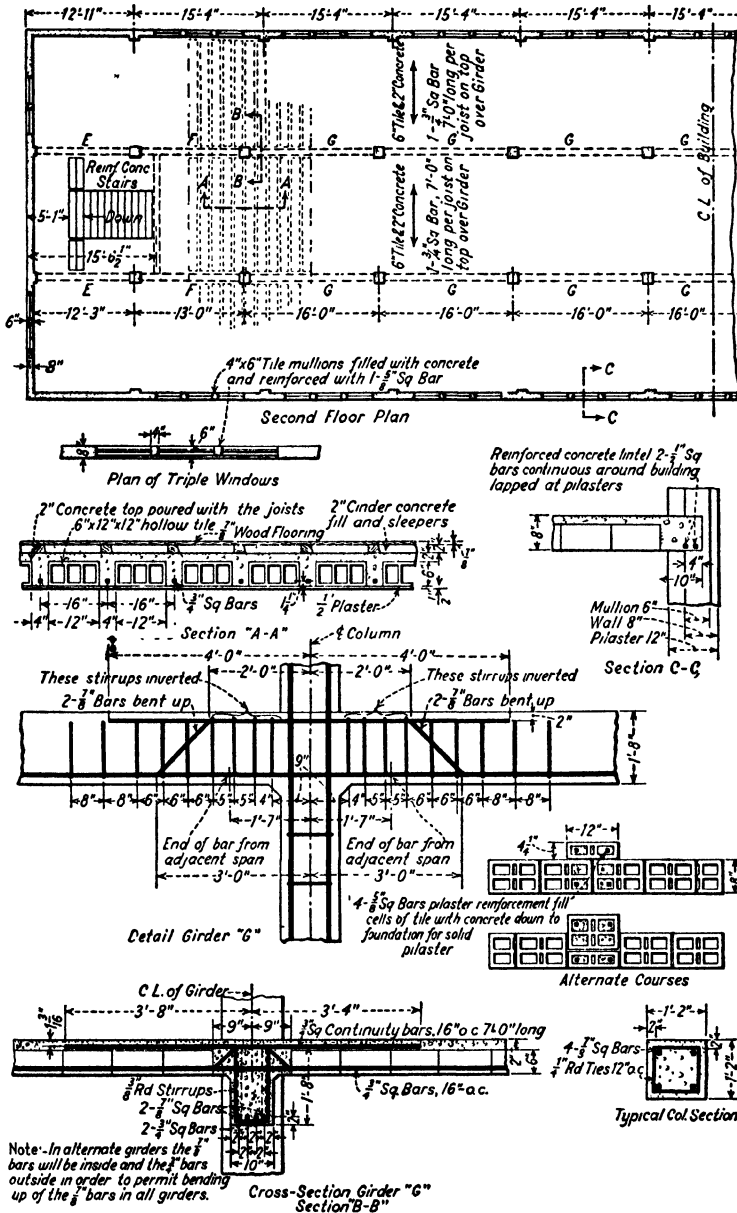 12'-11" 15'-4" 15'-4" 15'-4" 15'-4" 15'-4"
6"Tile & 2"Concrete
1-3/4" Sq Bar
7'-0" long per
joist on top
over Girder
B
B
E F G G G G
Reinf Conc
Stairs
Down
5'-1"
15'-6 1/2"
A A
6"Tile & 2"Concrete
1-3/4" Sq Bar, 7'-0"
long per joist on
top over Girder
C.L. of Building
E F G G G G
12'-3" 13'-0" 16'-0" 16'-0" 16'-0" 16'-0"
6"
8"
4"x6" Tile mullions filled with concrete
and reinforced with 1-5/8" Sq Bar
C
C
Second Floor Plan
8" 4" 6"
Plan of Triple Windows
Reinforced concrete lintel 2-1/2" Sq
bars continuous around building
lapped at pilasters
8"
4"
10"
Mullion 6"
Wall 8"
Pilaster 12"
Section C-C
2" Concrete top poured with the joists
6"x12"x12" hollow tile
7/8" Wood Flooring
2" Cinder concrete
fill and sleepers
16" 16"
3/4" Sq Bars
1 1/4"
1/2" Plaster
4" 12" 4" 12"
Section "A-A"
¢ Column
4'-0" 4'-0"
These stirrups inverted
2'-0" 2'-0"
These stirrups inverted
2-7/8" Bars bent up
2-7/8" Bars bent up
2"
1'-8"
9"
8" 8" 6" 6" 6" 5" 5" 4" 4" 5" 5" 6" 6" 6" 8" 8"
1'-7" 1'-7"
End of bar from
adjacent span
End of bar from
adjacent span
3'-0" 3'-0"
Detail Girder "G"
12"
4 1/4"
8"
4-5/8" Sq Bars pilaster reinforcement fill
cells of tile with concrete down to
foundation for solid
pilaster
Alternate Courses
C.L. of Girder
3'-8" 3'-4"
1 3/16"
9" 9"
3/4" Sq Continuity bars, 16" o.c 7'-0" long
2"
6"
3/8" Rd Stirrups
2-7/8" Sq Bars
2-3/4" Sq Bars
1'-8"
3/4" Sq. Bars, 16" o.c.
2"
2" 2" 2"
2" 2"
10"
Note:-In alternate girders the 7/8"
bars will be inside and the 3/4" bars
outside in order to permit bending
up of the 7/8" bars in all girders.
Cross-Section Girder "G"
Section "B-B"
1'-2"
2"
2"
4-7/8" Sq Bars
1/4" Rd Ties 12" o.c
1'-2"
Typical Col. Section